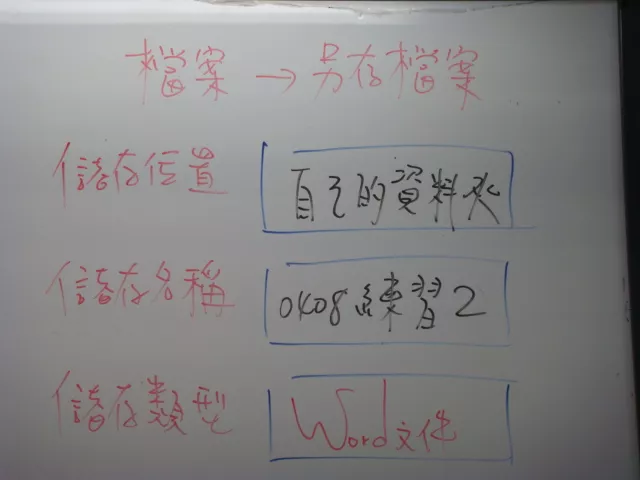 檔案→另存檔案
儲存位置 自己的資料夾
儲存名稱 0408練習2
儲存類型 Word文件